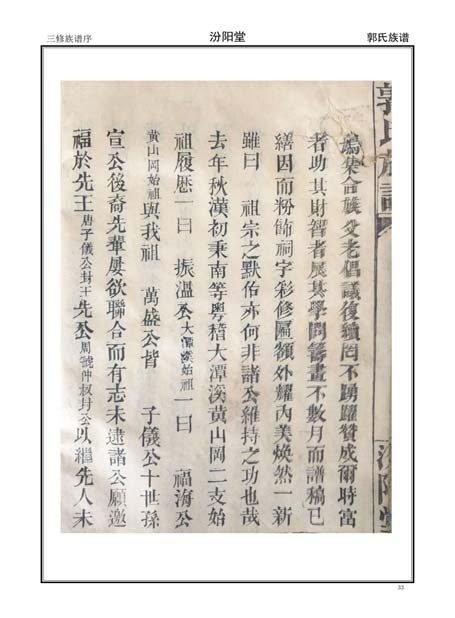 三修族谱序
汾阳堂
郭氏族谱
郭氏族譜
汾陽堂
編集合族父老倡議復續罔不踴躍贊成爾時富
者助其財智者展其學問籌畫不數月而譜稿已
繕因而粉飾祠宇彩修匾額外耀內美煥然一新
雖曰 祖宗之默佑亦何非諸公維持之功也哉
去年秋漢初秉南等粵稽大潭溪黃山岡二支始
祖履歷一曰 振溫公大潭溪始祖一曰 福海公
黃山岡始祖與我祖 萬盛公皆 子儀公十世孫
宣公後裔先輩屢欲聯合而有志未逮諸公願邀
福於先王唐子儀公封王先公周虢仲叔封公以繼先人未
33